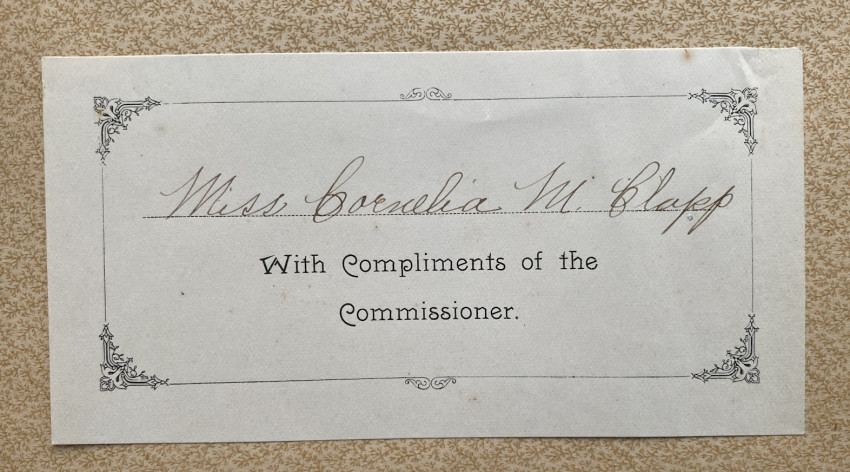 Miss Cornelia M. Clapp
With Compliments of the
Commissioner.